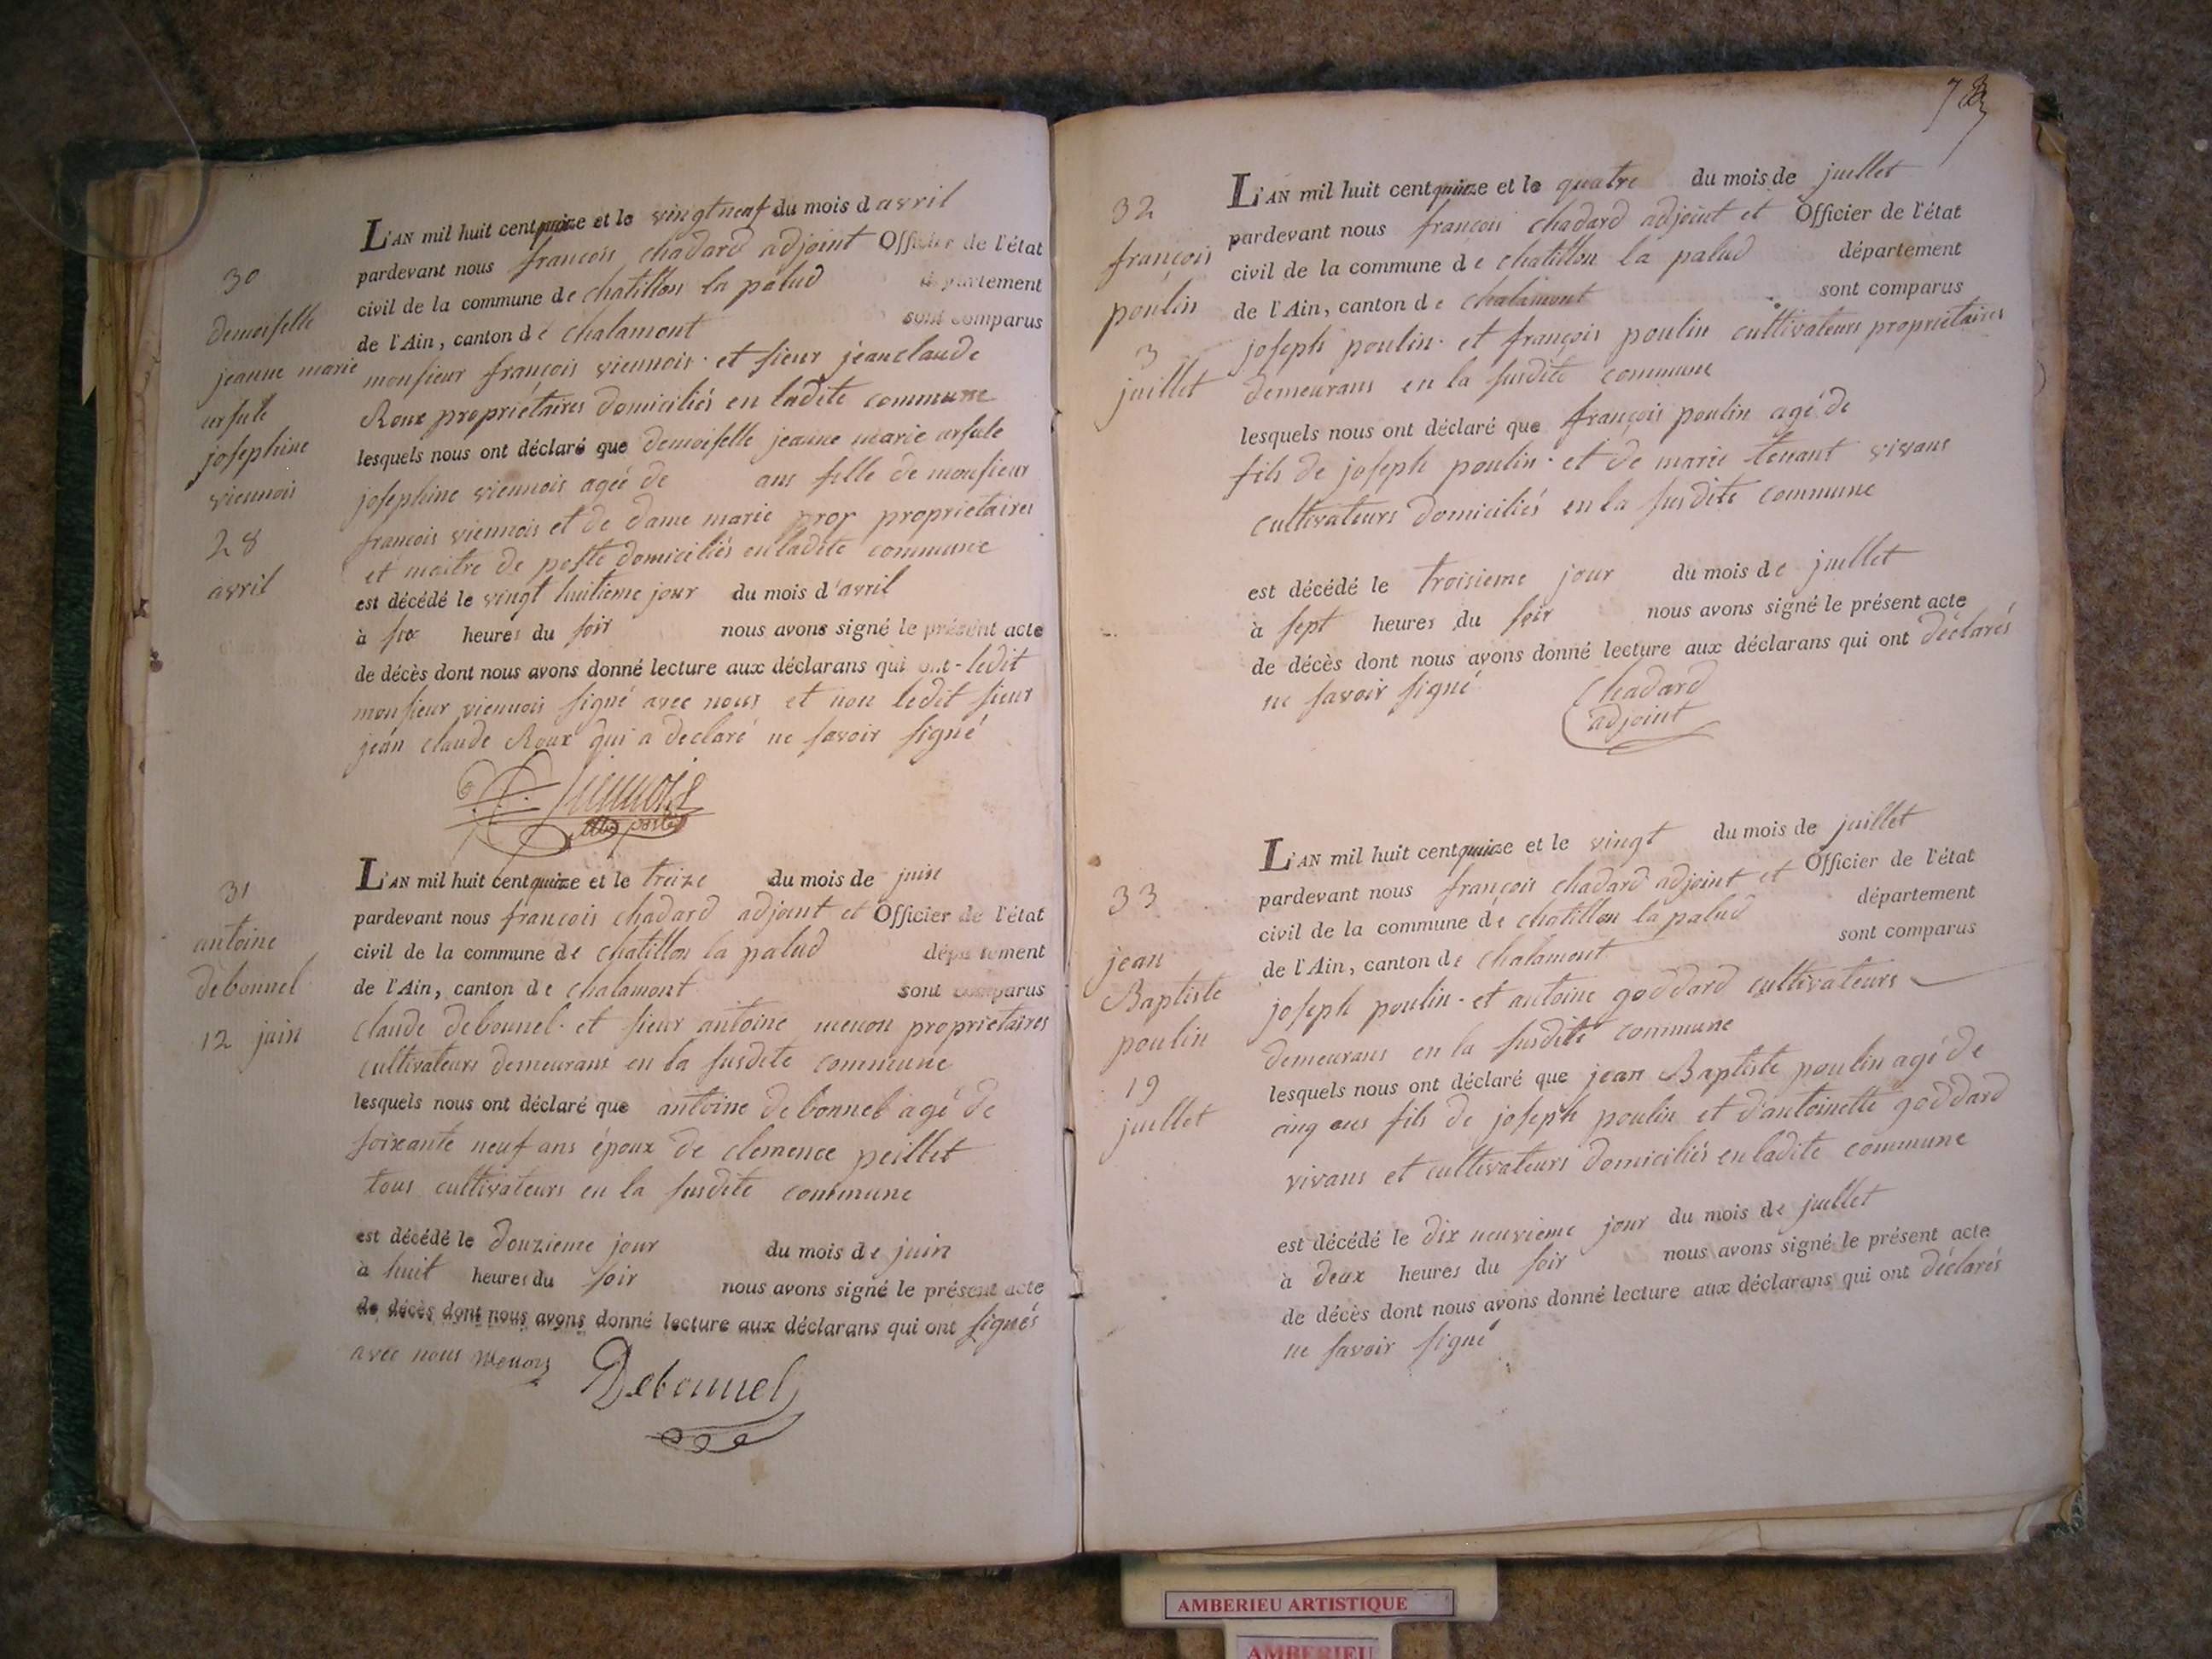 30
demoiselle
jeanne marie
ursule
josephine
viennois
28
avril
L'AN mil huit cent quinze et le vingt neuf du mois d avril
pardevant nous francois chadard adjoint Officier de l'état
civil de la commune de chatillon la palud département
de l'Ain, canton de chalamont sont comparus
monsieur françois viennois. et sieur jean claude
Roux propriétaires domiciliés en ladite commune
lesquels nous ont déclaré que demoiselle jeanne marie ursule
josephine viennois agée de ans fille de monsieur
francois viennois et de dame marie proprietaires
et maitre de poste domiciliés en ladite commune
est décédé le vingt huitieme jour du mois d'avril
à six heures du soir nous avons signé le présent acte
de décès dont nous avons donné lecture aux déclarans qui ont - ledit
monsieur viennois signé avec nous et non ledit sieur
jean claude Roux qui a declaré ne savoir signé
Viennois
31
antoine
debonnel
12 juin
L'AN mil huit cent quinze et le treize du mois de juin
pardevant nous francois chadard adjoint et Officier de l'état
civil de la commune de chatillon la palud département
de l'Ain, canton de chalamont sont comparus
claude debonnel. et sieur antoine menon proprietaires
cultivateurs demeurans en la susdite commune
lesquels nous ont déclaré que antoine debonnel agé de
soixante neuf ans époux de clemence peillet
tous cultivateurs en la susdite commune
est décédé le douzieme jour du mois de juin
à huit heures du soir nous avons signé le présent acte
de décès dont nous avons donné lecture aux déclarans qui ont signés
avec nous
Debonnel
32
françois
poulin
3
juillet
L'AN mil huit cent quinze et le quatre du mois de juillet
pardevant nous francois chadard adjoint et Officier de l'état
civil de la commune de chatillon la palud département
de l'Ain, canton de chalamont sont comparus
joseph poulin. et françois poulin cultivateurs proprietaires
demeurans en la susdite commune
lesquels nous ont déclaré que françois poulin agé de
fils de joseph poulin. et de marie tenant vivans
cultivateurs domiciliés en la susdite commune
est décédé le troisieme jour du mois de juillet
à sept heures du soir nous avons signé le présent acte
de décès dont nous avons donné lecture aux déclarans qui ont déclarés
ne savoir signé
Chadard
adjoint
33
jean
Baptiste
poulin
19
juillet
L'AN mil huit cent quinze et le vingt du mois de juillet
pardevant nous françois chadard adjoint et Officier de l'état
civil de la commune de chatillon la palud département
de l'Ain, canton de chalamont sont comparus
joseph poulin. et antoine goddard cultivateurs
demeurans en la susdite commune
lesquels nous ont déclaré que jean Baptiste poulin agé de
cinq ans fils de joseph poulin et d'antoinette goddard
vivans et cultivateurs domiciliés en ladite commune
est décédé le dix neuvieme jour du mois de juillet
à deux heures du soir nous avons signé le présent acte
de décès dont nous avons donné lecture aux déclarans qui ont déclarés
ne savoir signé
AMBERIEU ARTISTIQUE
AMBERIEU